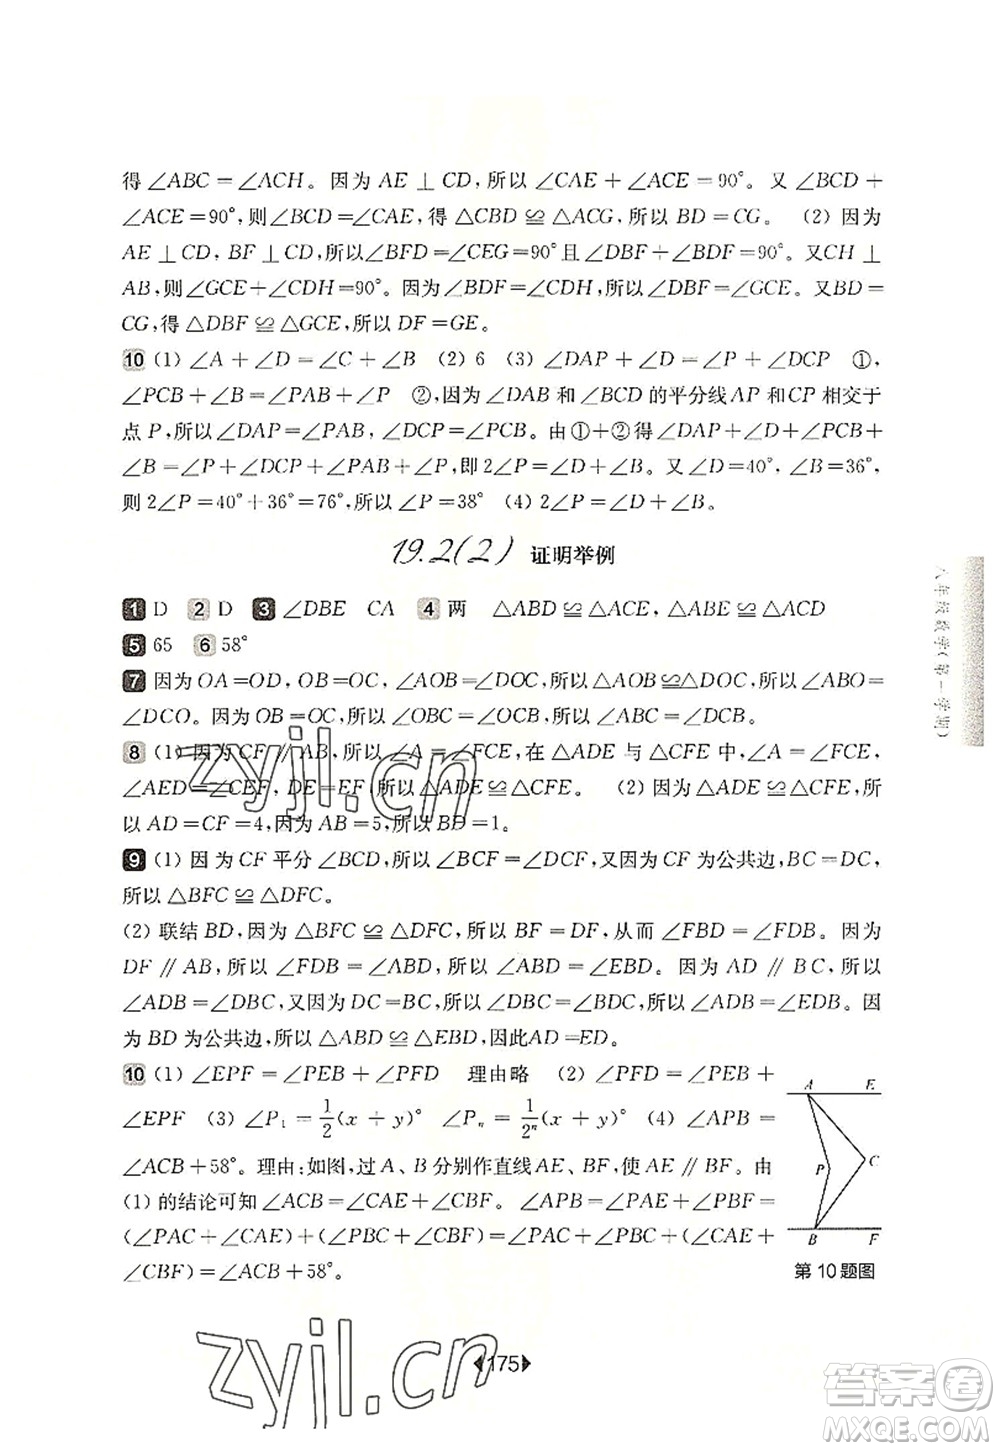 得 ∠ABC＝∠ACH。因为 AE ⊥ CD，所以 ∠CAE＋∠ACE＝90°。又 ∠BCD＋
∠ACE＝90°，则∠BCD＝∠CAE，得 △CBD ≌ △ACG，所以 BD＝CG。 (2) 因为
AE ⊥ CD，BF ⊥ CD，所以∠BFD＝∠CEG＝90°且∠DBF＋∠BDF＝90°。又CH ⊥
AB，则∠GCE＋∠CDH＝90°。因为∠BDF＝∠CDH，所以∠DBF＝∠GCE。又BD＝
CG，得 △DBF ≌ △GCE，所以 DF＝GE。
10 (1) ∠A＋∠D＝∠C＋∠B (2) 6 (3) ∠DAP＋∠D＝∠P＋∠DCP ①，
∠PCB＋∠B＝∠PAB＋∠P ②，因为∠DAB 和∠BCD 的平分线AP 和CP 相交于
点 P，所以∠DAP＝∠PAB，∠DCP＝∠PCB。由①＋②得∠DAP＋∠D＋∠PCB＋
∠B＝∠P＋∠DCP＋∠PAB＋∠P，即 2∠P＝∠D＋∠B。又∠D＝40°，∠B＝36°，
则 2∠P＝40°＋36°＝76°，所以∠P＝38° (4) 2∠P＝∠D＋∠B。
19.2(2) 证明举例
1 D 2 D 3 ∠DBE CA 4 两 △ABD ≌ △ACE，△ABE ≌ △ACD
5 65 6 58°
7 因为 OA＝OD，OB＝OC，∠AOB＝∠DOC，所以△AOB ≌△DOC，所以∠ABO＝
∠DCO。因为 OB＝OC，所以 ∠OBC＝∠OCB，所以∠ABC＝∠DCB。
8 (1) 因为 CF // AB，所以 ∠A＝∠FCE，在 △ADE 与 △CFE 中，∠A＝∠FCE，
∠AED＝∠CEF，DE＝EF，所以△ADE ≌ △CFE。 (2) 因为△ADE ≌ △CFE，所
以 AD＝CF＝4，因为 AB＝5，所以 BD＝1。
9 (1) 因 为 CF 平分 ∠BCD，所以 ∠BCF＝∠DCF，又因为 CF 为公共边，BC＝DC，
所以 △BFC ≌ △DFC。
(2) 联结 BD，因为 △BFC ≌ △DFC，所以 BF＝DF，从而 ∠FBD＝∠FDB。因为
DF // AB，所以 ∠FDB＝∠ABD，所以 ∠ABD＝∠EBD。因为 AD // BC，所以
∠ADB＝∠DBC，又因为 DC＝BC，所以∠DBC＝∠BDC，所以∠ADB＝∠EDB。因
为 BD 为公共边，所以 △ABD ≌ △EBD，因此AD＝ED。
10 (1) ∠EPF＝∠PEB＋∠PFD 理由略 (2) ∠PFD＝∠PEB＋
∠EPF (3) ∠P₁＝1/2(x＋y)° ∠Pₙ＝1/2ⁿ(x＋y)° (4) ∠APB＝
∠ACB＋58°。理由：如图，过 A、B 分别作直线AE、BF，使 AE // BF。由
(1) 的结论可知 ∠ACB＝∠CAE＋∠CBF。∠APB＝∠PAE＋∠PBF＝
(∠PAC＋∠CAE)＋(∠PBC＋∠CBF)＝∠PAC＋∠PBC＋(∠CAE＋
∠CBF)＝∠ACB＋58°。
A E
P C
B F
第10题图
八年级数学(第一学期)
175
zyjl.cn
zyjl.cn
答案圈
MXQE.COM